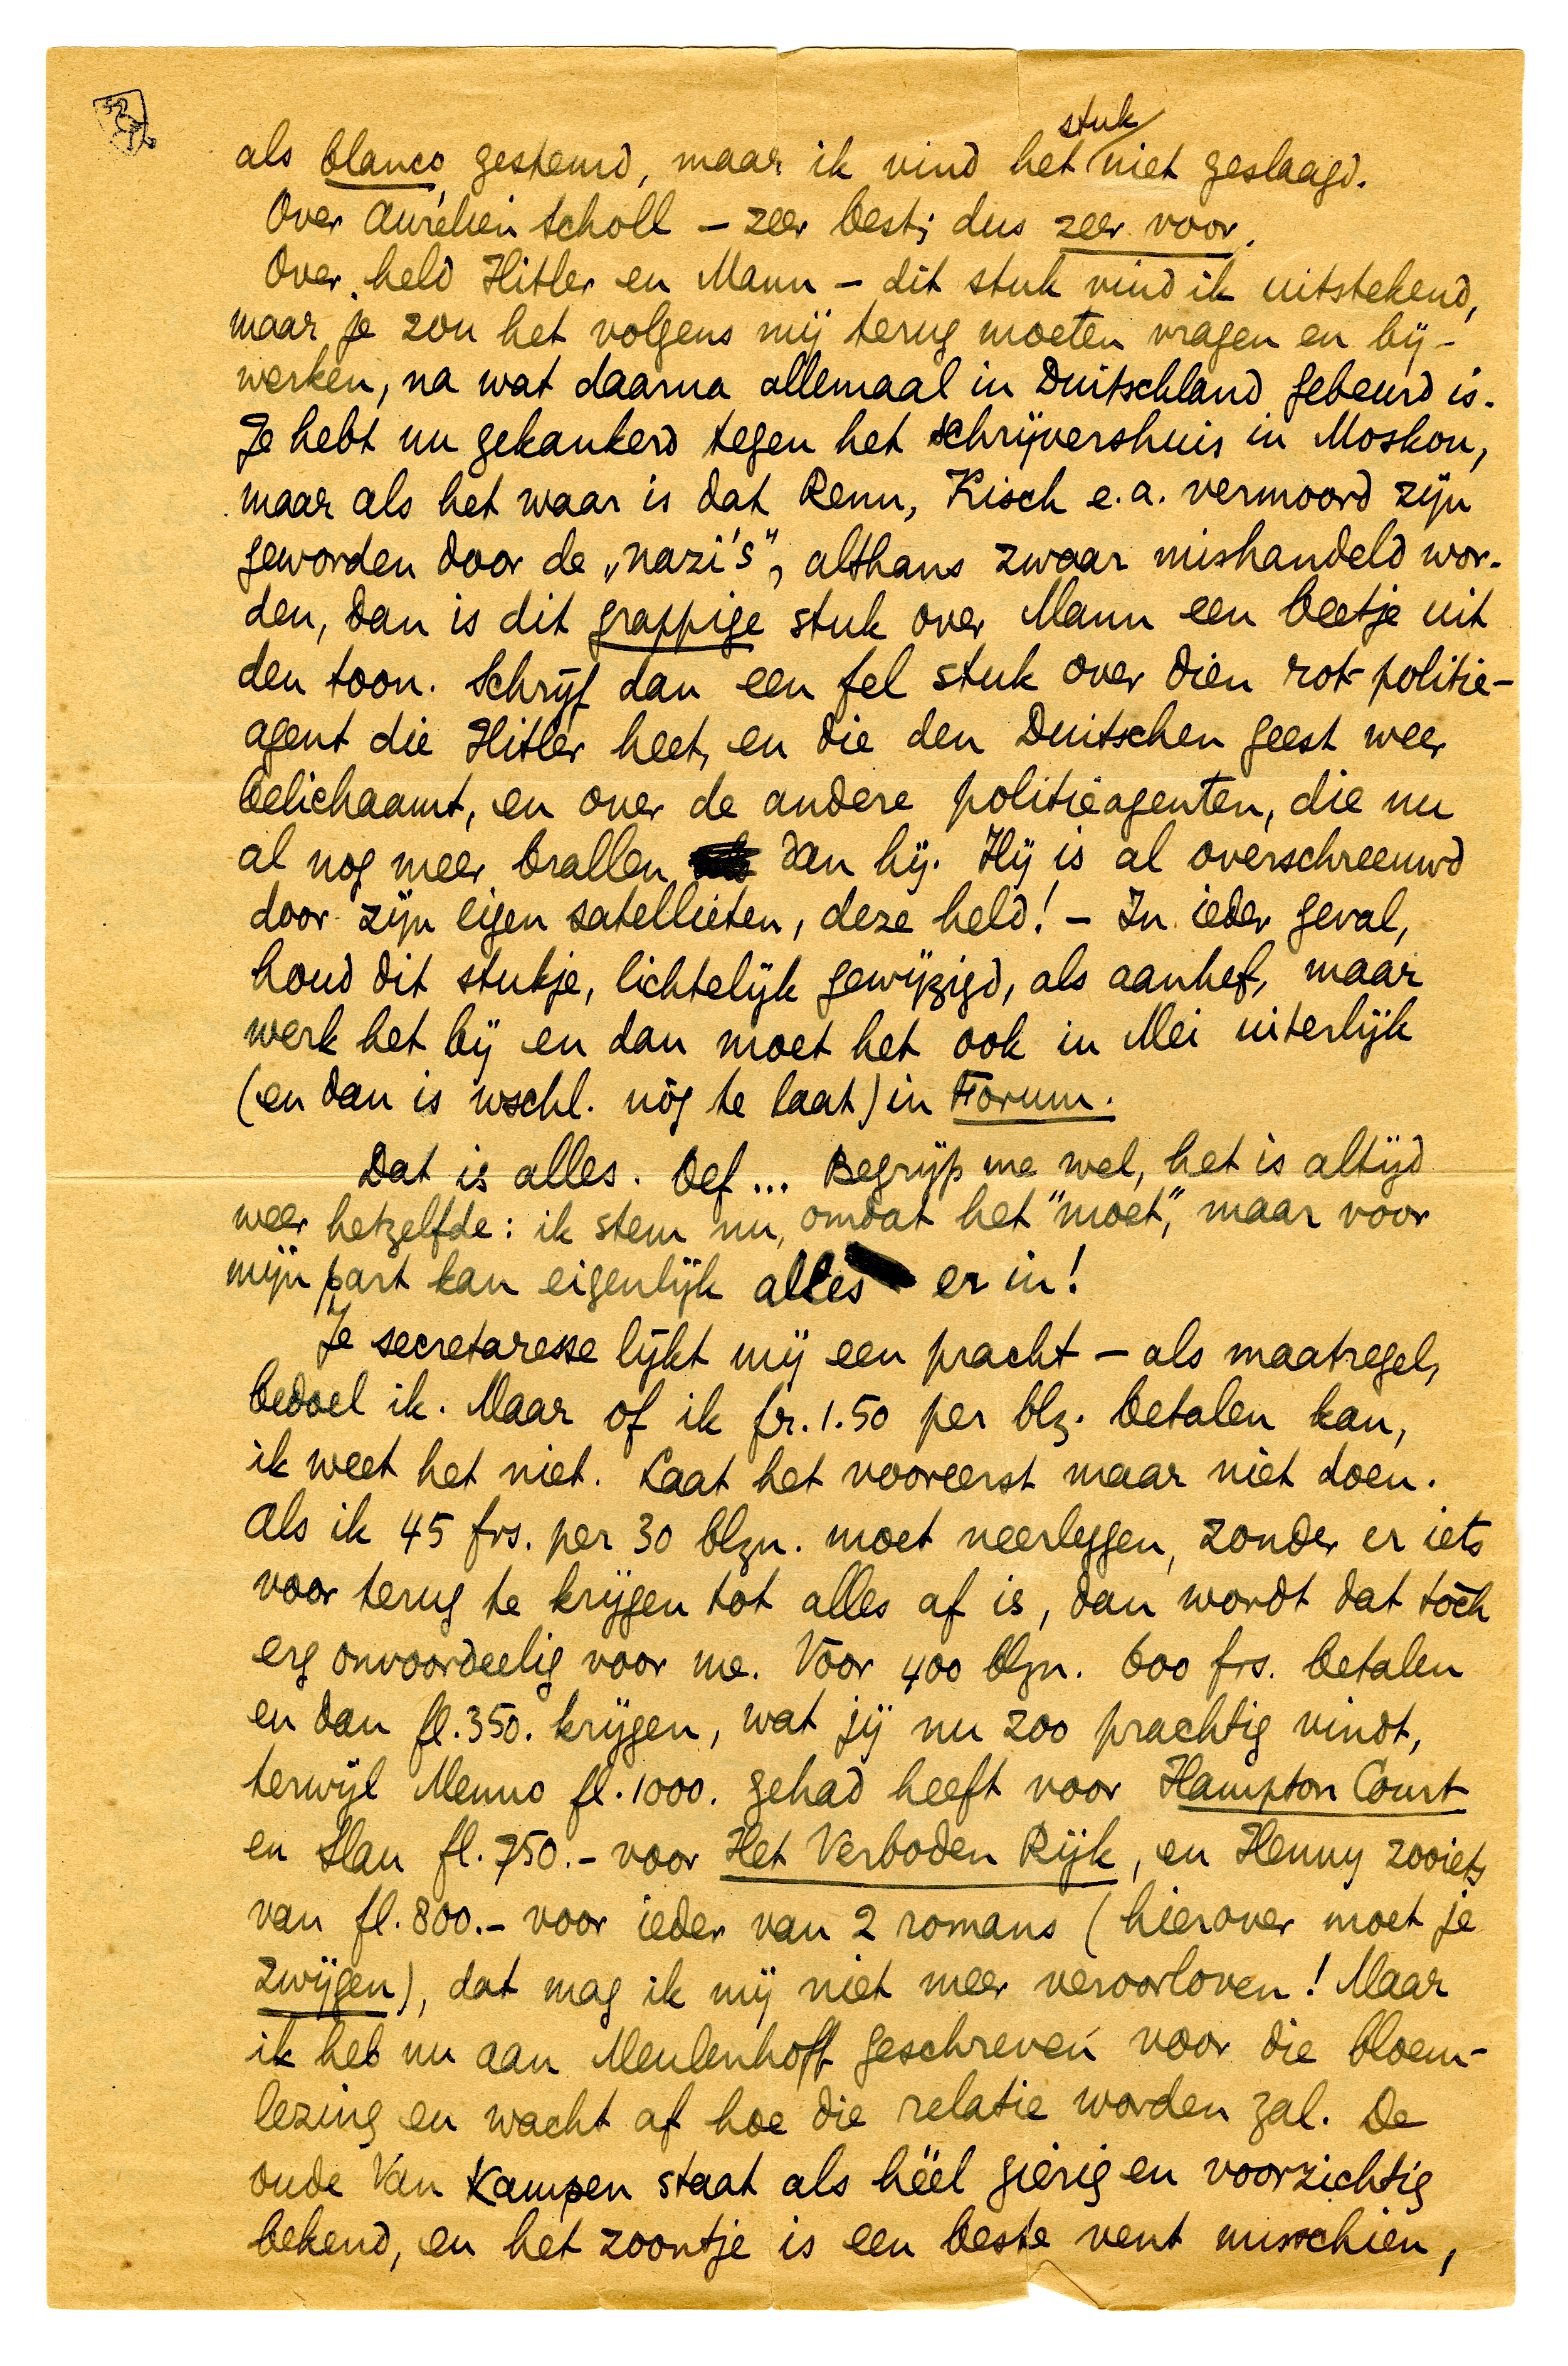 als blanco gestemd, maar ik vind het stuk niet geslaagd.
Over Aurélien Scholl – zeer best; dus zeer voor.
Over held Hitler en Mann – dit stuk vind ik uitstekend,
maar je zou het volgens mij terug moeten vragen en bij-
werken, na wat daarna allemaal in Duitschland gebeurd is.
Je hebt nu gekankerd tegen het schrijvershuis in Moskou,
maar als het waar is dat Renn, Kisch e.a. vermoord zijn
geworden door de „nazi's", althans zwaar mishandeld wor-
den, dan is dit grappige stuk over Mann een beetje uit
den toon. Schrijf dan een fel stuk over dien rot-politie-
agent die Hitler heet, en die den Duitschen geest weer
belichaamt, en over de andere politieagenten, die nu
al nog meer brallen dan hij. Hij is al overschreeuwd
door zijn eigen satellieten, deze held! – In ieder geval,
houd dit stukje, lichtelijk gewijzigd, als aanhef, maar
werk het bij en dan moet het ook in Mei uiterlijk
(en dan is wschl. nòg te laat) in Forum.
Dat is alles. Oef... Begrijp me wel, het is altijd
weer hetzelfde: ik stem nu, omdat het "moet", maar voor
mijn part kan eigenlijk alles er in!
Je secretaresse lijkt mij een pracht – als maatregel,
bedoel ik. Maar of ik fr. 1.50 per blz. betalen kan,
ik weet het niet. Laat het vooreerst maar niet doen.
Als ik 45 frs. per 30 blzn. moet neerleggen, zonder er iets
voor terug te krijgen tot alles af is, dan wordt dat tòch
erg onvoordeelig voor me. Voor 400 blzn. 600 frs. betalen
en dan fl. 350. krijgen, wat jij nu zoo prachtig vindt,
terwijl Menno fl. 1000. gehad heeft voor Hampton Court
en Slau fl. 750.– voor Het Verboden Rijk, en Henny zooiets
van fl. 800.– voor ieder van 2 romans (hierover moet je
zwijgen), dat mag ik mij niet meer veroorloven! Maar
ik heb nu aan Meulenhoff geschreven voor die bloem-
lezing en wacht af hoe die relatie worden zal. De
oude Van Kampen staat als héél gierig en voorzichtig
bekend, en het zoontje is een beste vent misschien,